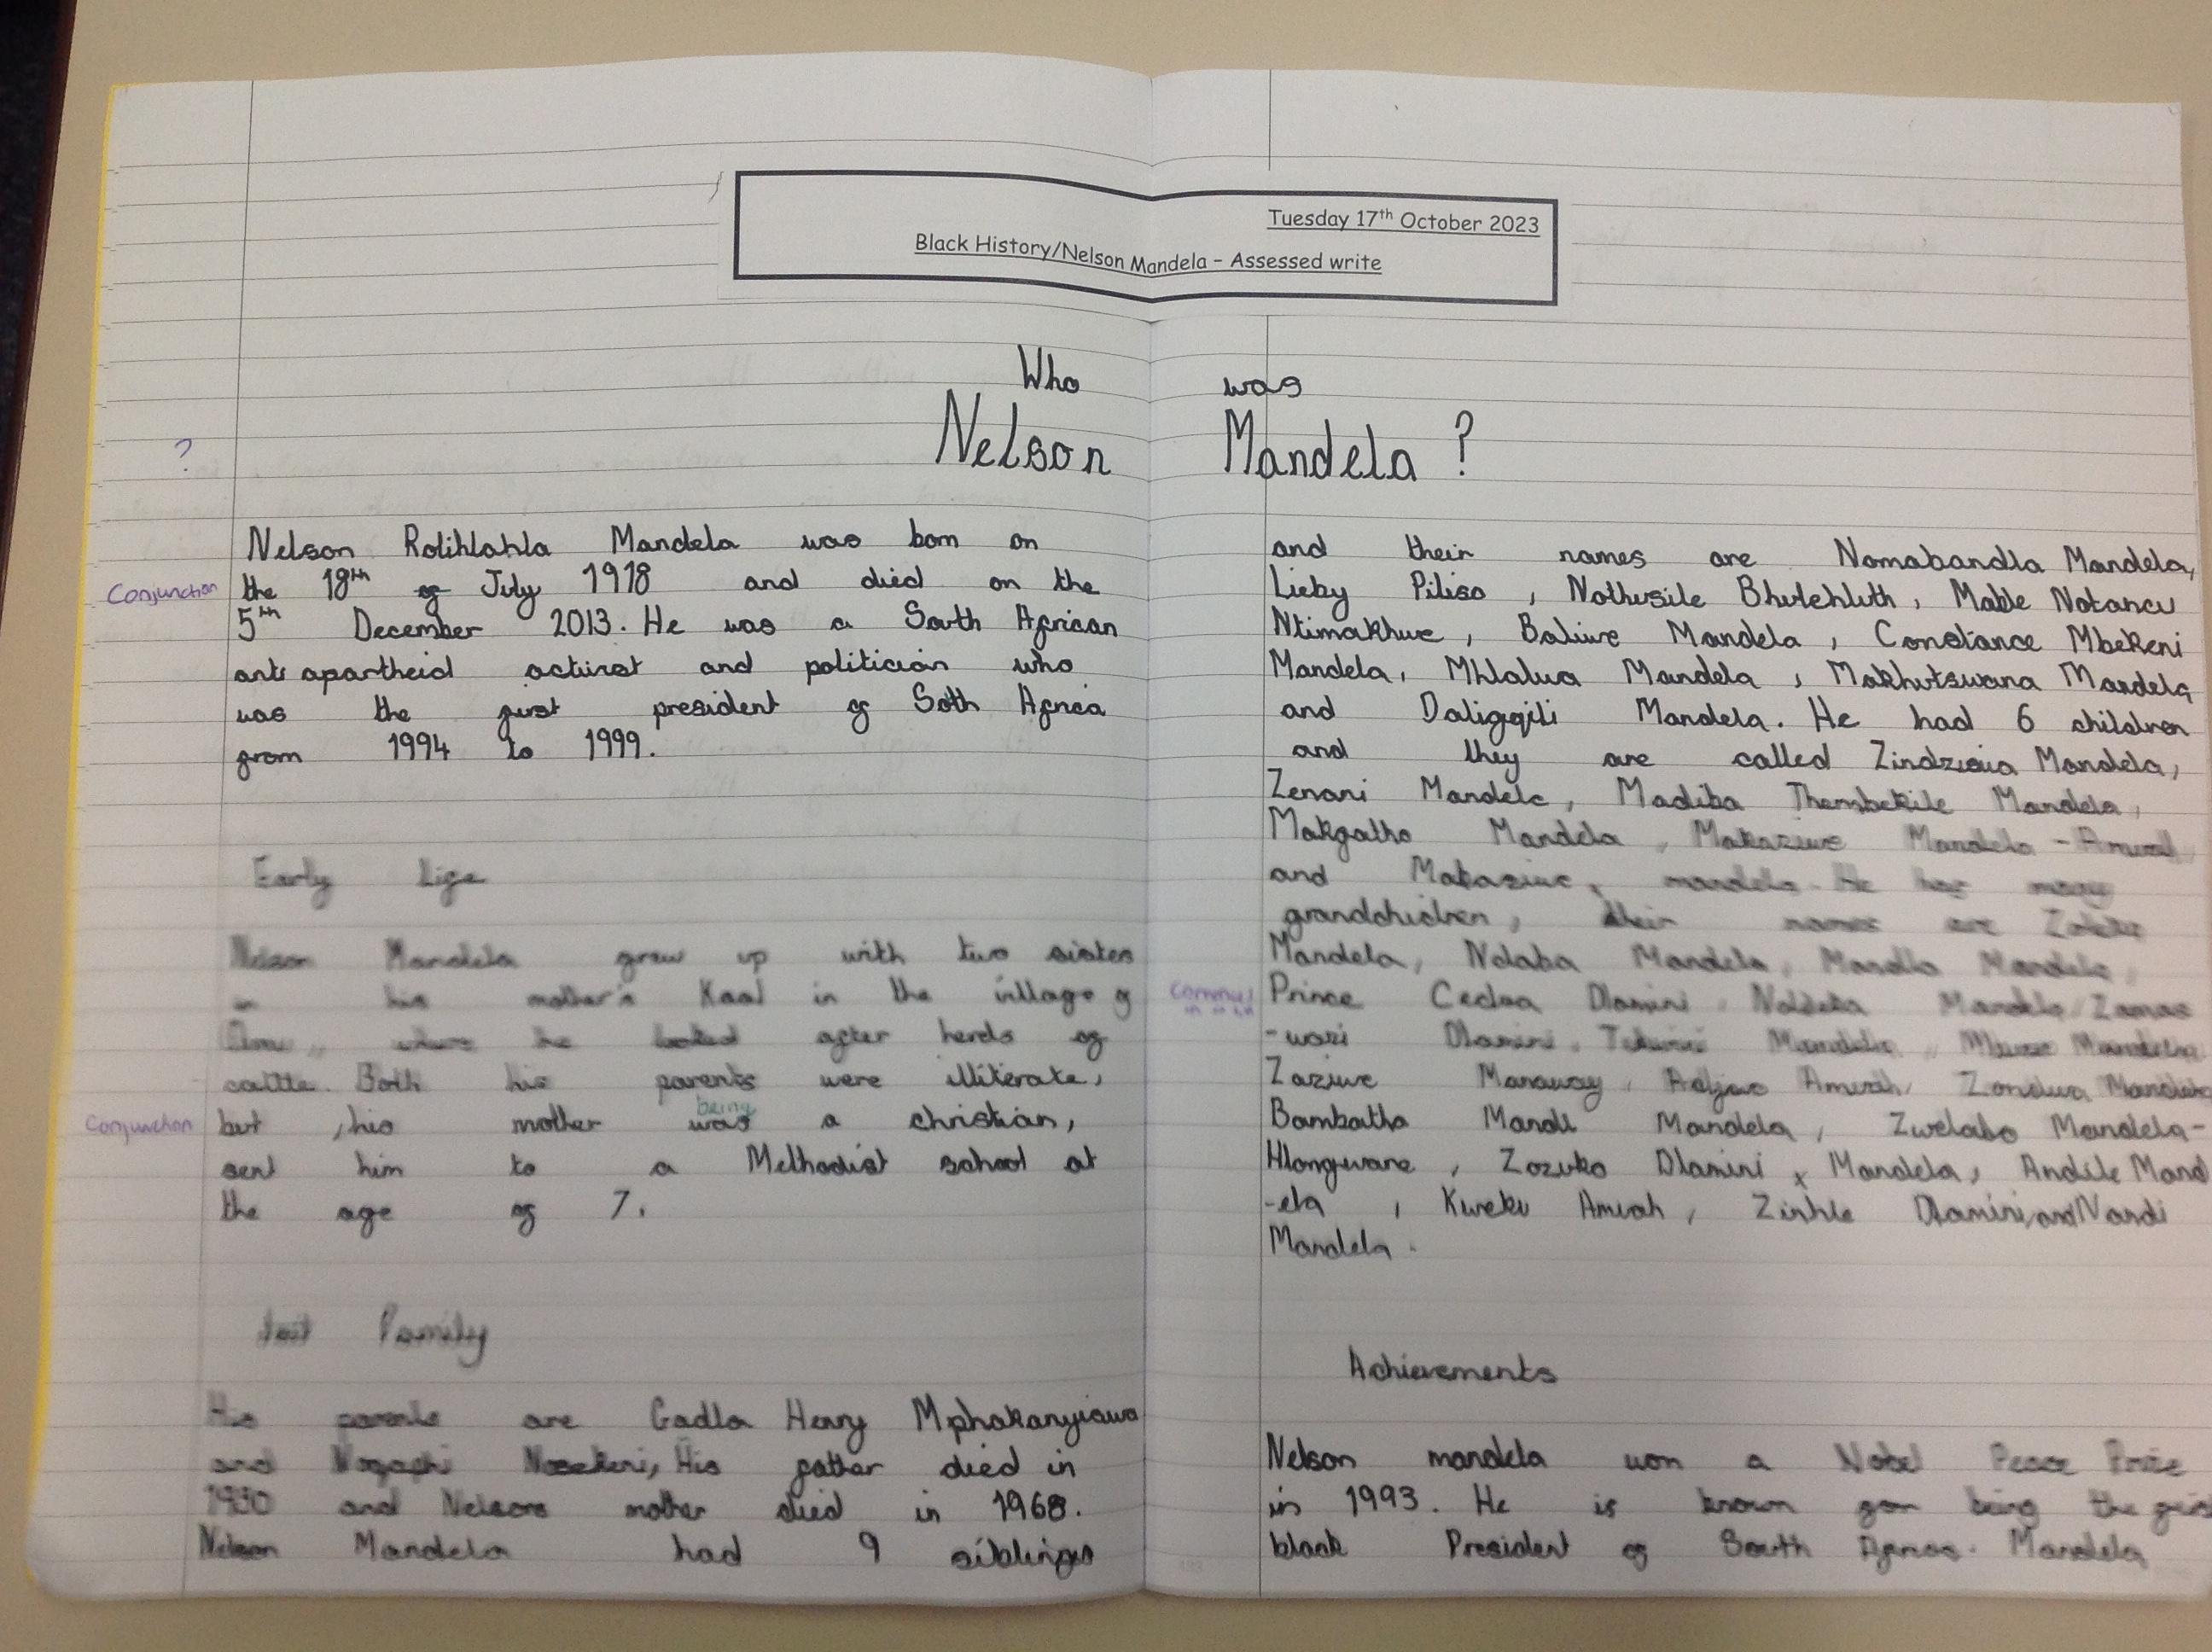 Tuesday 17th October 2023
Black History/Nelson Mandela – Assessed write
Who was
Nelson Mandela ?
?
Nelson Rolihlahla Mandela was born on
Conjunction
the 18th of July 1918 and died on the
5th December 2013. He was a South African
anti apartheid activist and politician who
was the first president of Soth Africa
from 1994 to 1999.
Early Life
Nelson Mandela grew up with two sisters
in his mother's Kaal in the village of
where he looked after herds of
cattle. Both his parents were illiterate,
being
Conjunction
but , his mother was a christian,
sent him to a Methodist school at
the age of 7.
Family
His parents are Gadla Henry
and Nosekeni, His father died in
1930 and Nelsons mother died in 1968.
Nelson Mandela had 9 siblings
and their names are Nomabandla Mandela,
Lieby Piliso , Nothusile Bhulehluth , Mable Notancu
Ntimakhwe , Baliwe Mandela , Constance Mbekeni
Mandela, Mhlalwa Mandela , Makhutswana Mandela
and Daligqili Mandela. He had 6 children
and they are called Mandela,
Zenani Mandela, Madiba Thembekile Mandela,
Makgatho Mandela , Makaziwe Mandela -
and Makaziwe, mandela. He has many
grandchidren , their names are
Mandela, Ndaba Mandela, Mandla Mandela,
commas
Prince Cedza Dlamini , Mandela
Dlamini , Mandela, Mandela
Zaziwe Manaway , Amuah, Mandela
Bambatha Mandela , Zwelabo Mandela-
Hlongwane , Zozuko Dlamini , Mandela, Andile Mand
-ela , Kweku Amuah , Zinhle Dlamini, and Nandi
Mandela .
Achievements
Nelson mandela won a Nobel Peace Prize
in 1993. He is known for being the first
black President of South Africa. Mandela